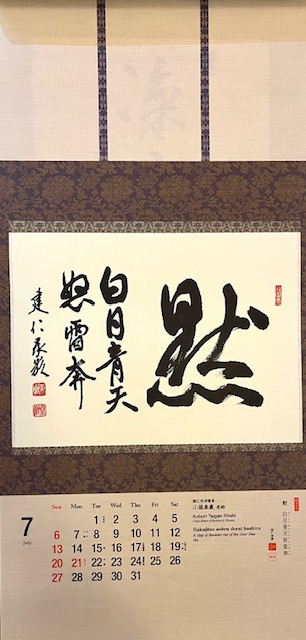 默
白日青天
怒雷奔
建仁承敬
7
July
Sun Mon Tue Wed Thu Fri Sat
1 2 3 4 5
6 7 8 9 10 11 12
13 14 15 16 17 18 19
20 21 22 23 24 25 26
27 28 29 30 31
小堀泰巖 老師
Kobori Taigan Rōshi
默 白日青天怒雷奔
Hakujitsu seiten dorai hashiru
A clap of thunder out of the clear blue sky.